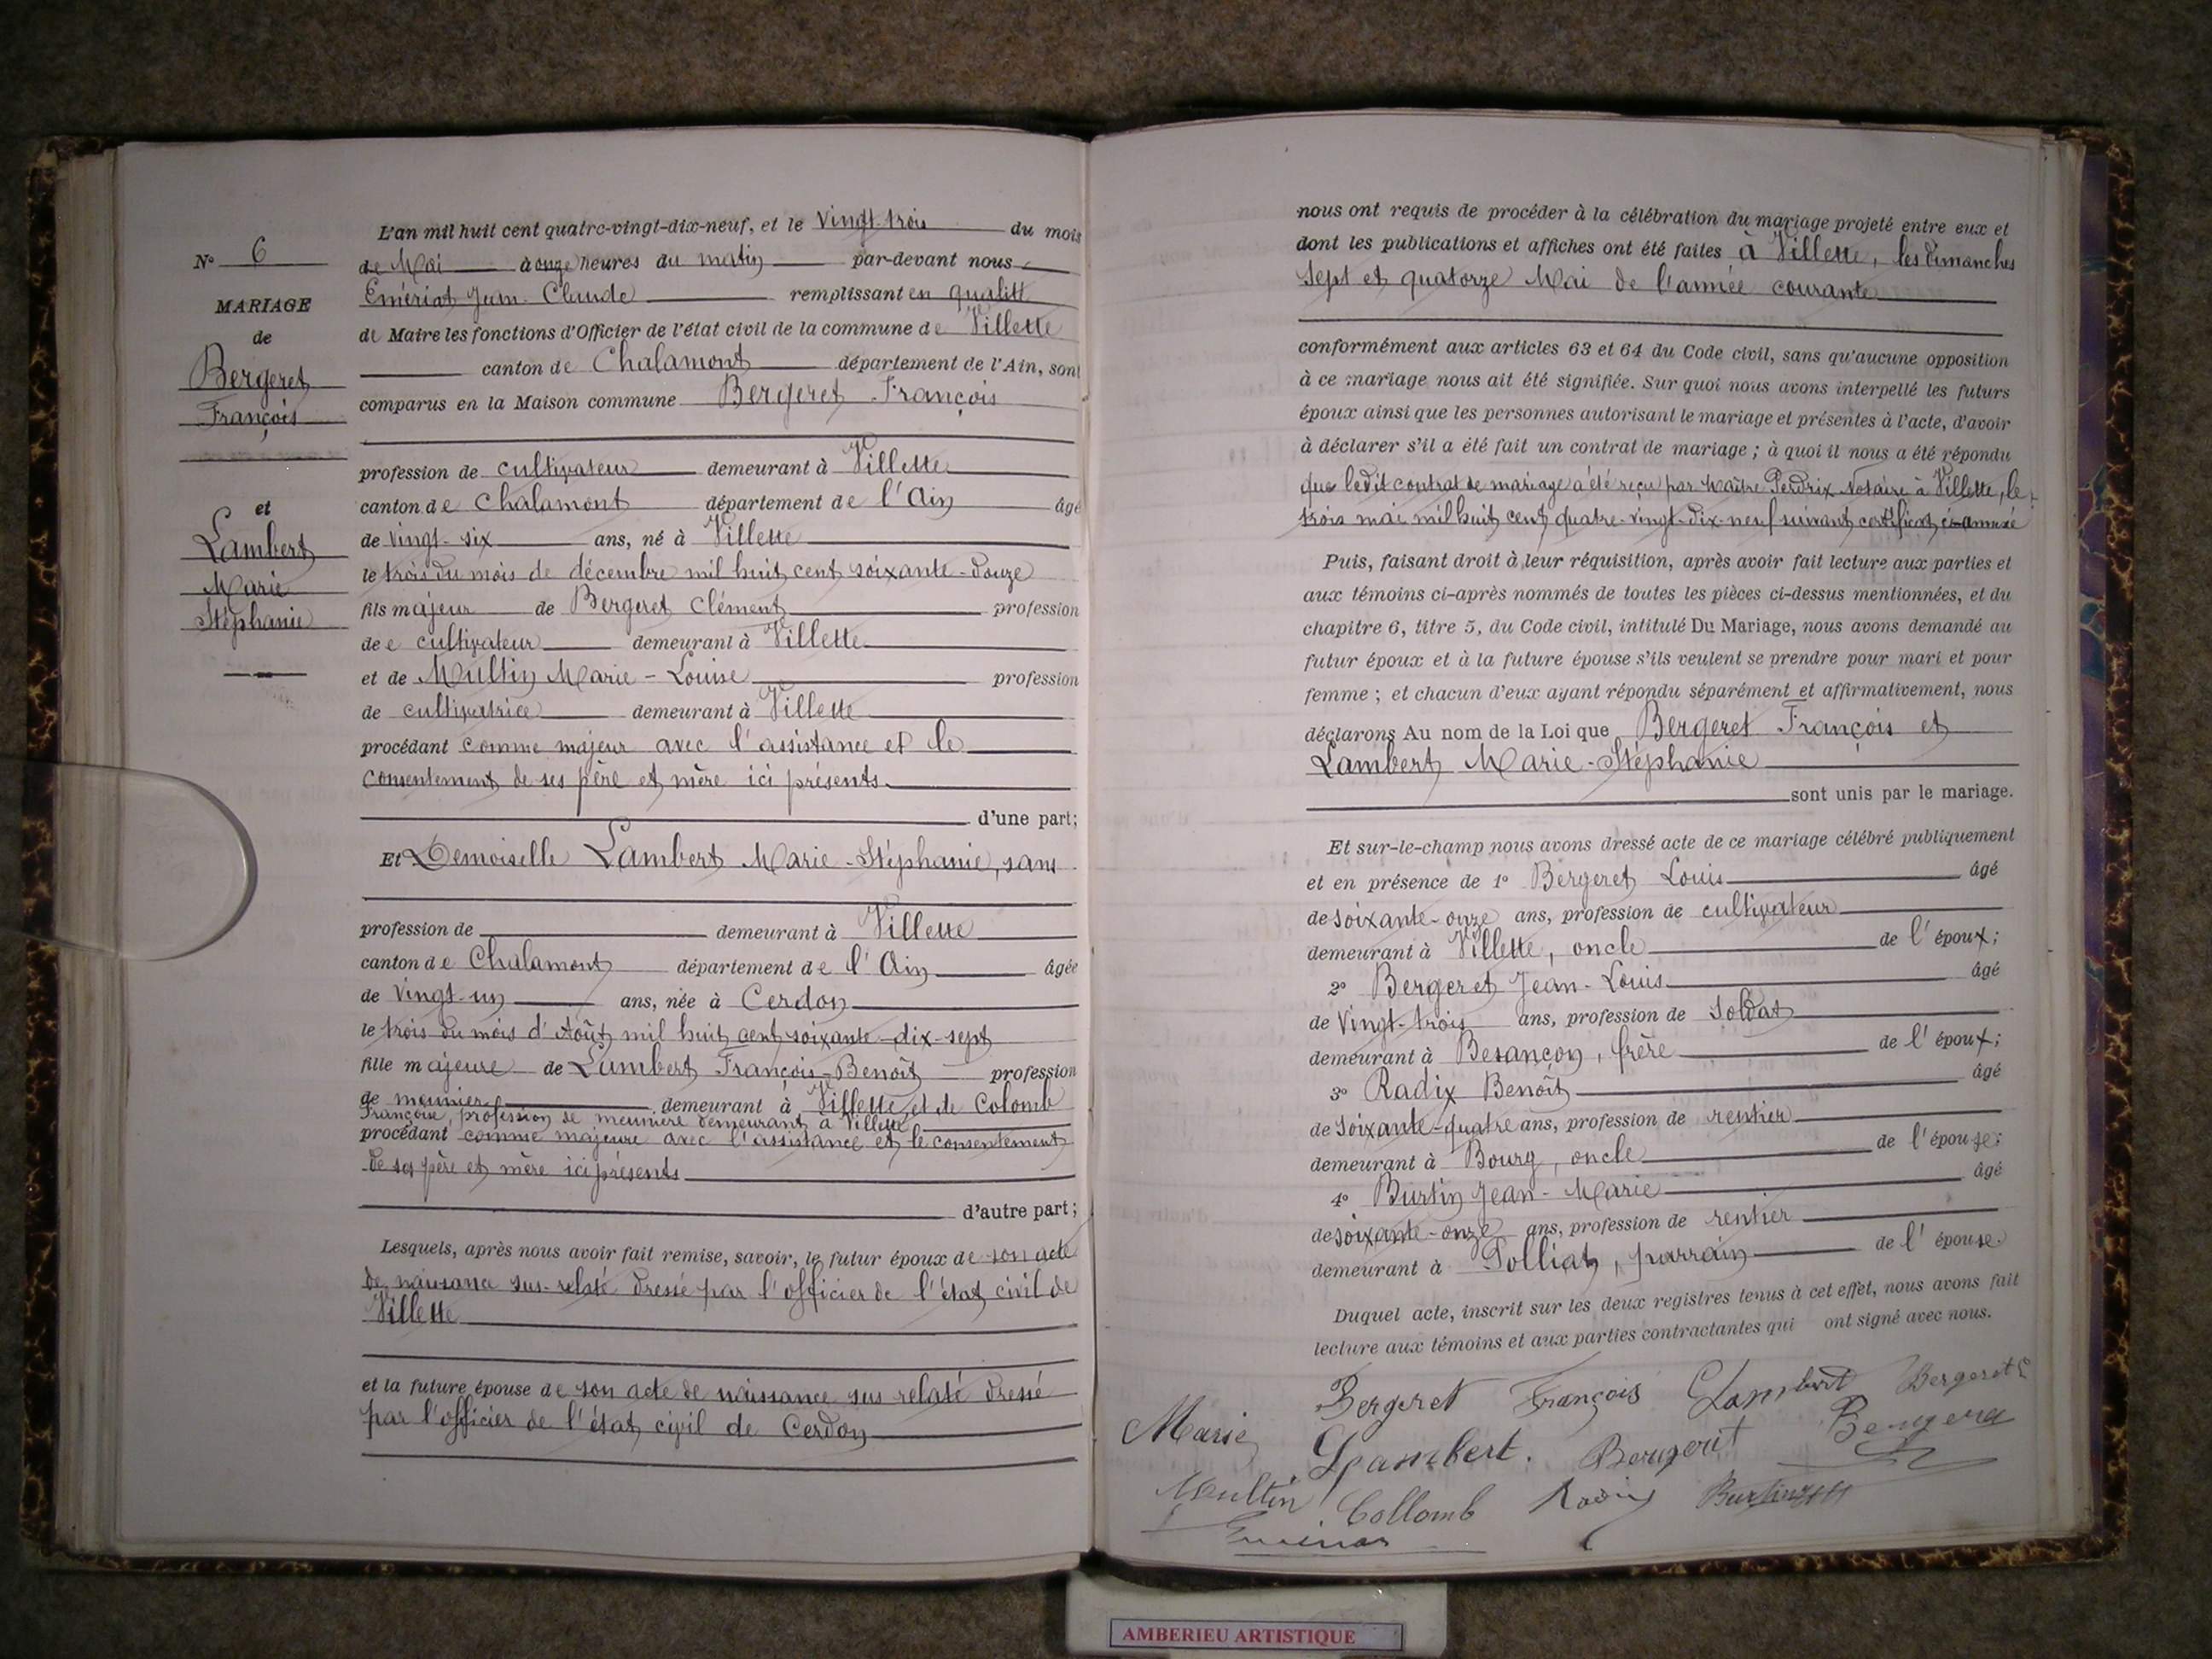 N° 6
MARIAGE
de
Bergeret
François
et
Lambert
Marie
Stéphanie
L'an mil huit cent quatre-vingt-dix-neuf, et le vingt-trois du mois
de Mai à onze heures du matin par-devant nous
Emériat Jean-Claude remplissant en qualité
de Maire les fonctions d'Officier de l'état civil de la commune de Villette
canton de Chalamont département de l'Ain, sont
comparus en la Maison commune Bergeret François
profession de cultivateur demeurant à Villette
canton de Chalamont département de l'Ain âgé
de vingt-six ans, né à Villette
le trois du mois de décembre mil huit cent soixante-douze
fils majeur de Bergeret Clément profession
de e cultivateur demeurant à Villette
et de Multin Marie-Louise profession
de cultivatrice demeurant à Villette
procédant comme majeur avec l'assistance et le
consentement de ses père et mère ici présents.
d'une part;
Et Demoiselle Lambert Marie-Stéphanie, sans
profession de demeurant à Villette
canton de Chalamont département de l'Ain âgée
de vingt-un ans, née à Cerdon
le trois du mois d'Août mil huit cent soixante-dix-sept
fille majeure de Lambert François-Benoît profession
de meunier demeurant à Villette, et de Colomb
Françoise, profession de meunière demeurant à Villette
procédant comme majeure avec l'assistance et le consentement
de ses père et mère ici présents
d'autre part;
Lesquels, après nous avoir fait remise, savoir, le futur époux de son acte
de naissance sus-relaté dressé par l'officier de l'état civil de
Villette
et la future épouse de son acte de naissance sus relaté dressé
par l'officier de l'état civil de Cerdon
nous ont requis de procéder à la célébration du mariage projeté entre eux et
dont les publications et affiches ont été faites à Villette, les dimanches
sept et quatorze Mai de l'année courante
conformément aux articles 63 et 64 du Code civil, sans qu'aucune opposition
à ce mariage nous ait été signifiée. Sur quoi nous avons interpellé les futurs
époux ainsi que les personnes autorisant le mariage et présentes à l'acte, d'avoir
à déclarer s'il a été fait un contrat de mariage ; à quoi il nous a été répondu
que ledit contrat de mariage a été reçu par maître Perdrix Notaire à Villette, le
trois mai mil huit cent quatre-vingt-dix-neuf suivant certificat ci-annexé
Puis, faisant droit à leur réquisition, après avoir fait lecture aux parties et
aux témoins ci-après nommés de toutes les pièces ci-dessus mentionnées, et du
chapitre 6, titre 5, du Code civil, intitulé Du Mariage, nous avons demandé au
futur époux et à la future épouse s'ils veulent se prendre pour mari et pour
femme ; et chacun d'eux ayant répondu séparément et affirmativement, nous
déclarons Au nom de la Loi que Bergeret François et
Lambert Marie-Stéphanie
sont unis par le mariage.
Et sur-le-champ nous avons dressé acte de ce mariage célébré publiquement
et en présence de 1° Bergeret Louis âgé
de soixante-onze ans, profession de cultivateur
demeurant à Villette, oncle de l'époux;
2° Bergeret Jean-Louis âgé
de vingt-trois ans, profession de soldat
demeurant à Besançon, frère de l'époux;
3° Radix Benoît âgé
de soixante-quatre ans, profession de rentier
demeurant à Bourg, oncle de l'épouse;
4° Burtin Jean-Marie âgé
de soixante-onze ans, profession de rentier
demeurant à Polliat, parrain de l'épouse.
Duquel acte, inscrit sur les deux registres tenus à cet effet, nous avons fait
lecture aux témoins et aux parties contractantes qui ont signé avec nous.
Bergeret François Lambert Bergeret
Marie Lambert. Bergeret
Multin Collomb Radix Burtin
AMBERIEU ARTISTIQUE